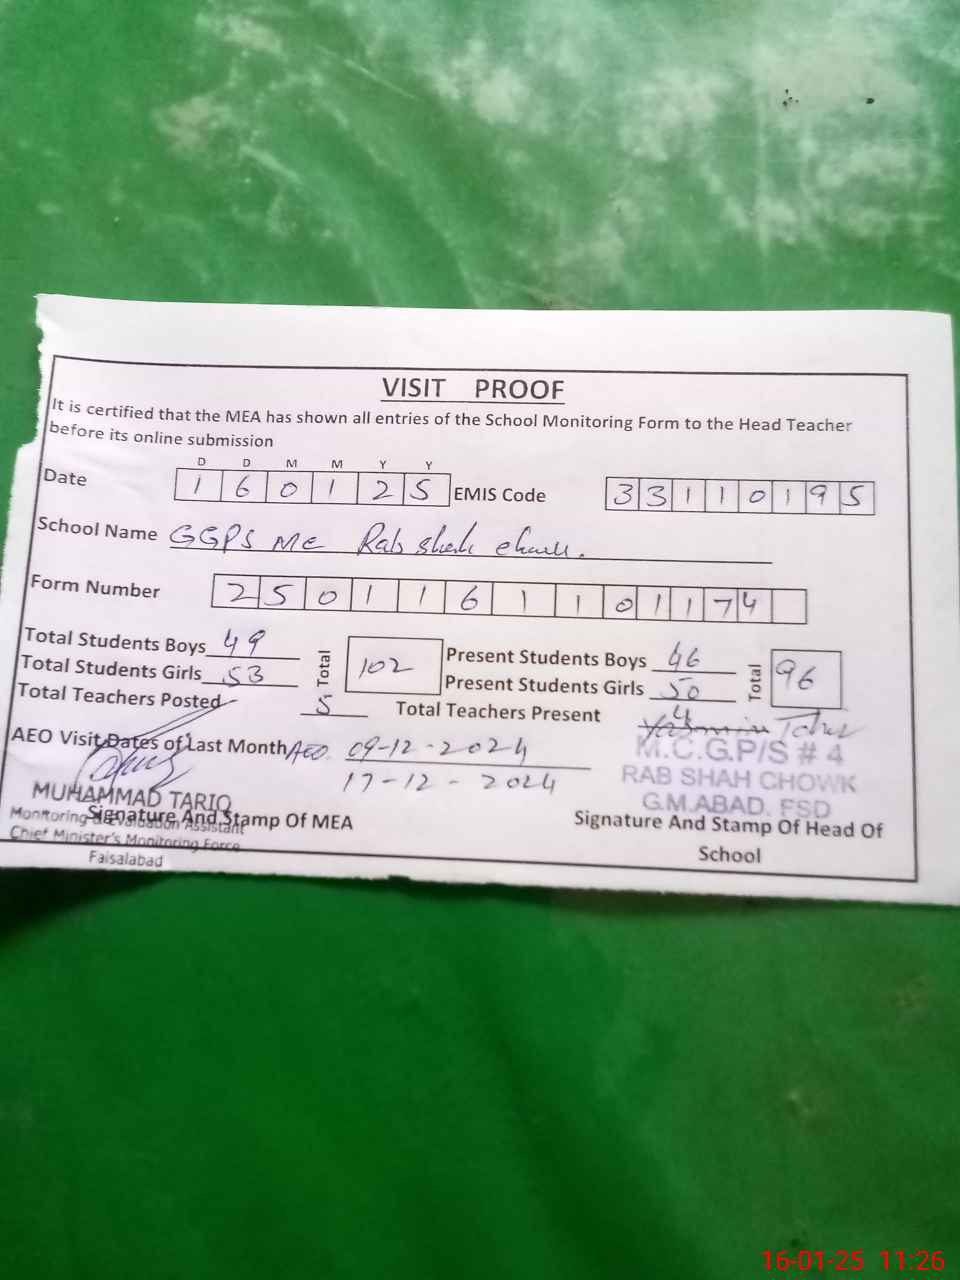 VISIT PROOF
It is certified that the MEA has shown all entries of the School Monitoring Form to the Head Teacher
before its online submission
D D M M Y Y
Date 1 6 0 1 2 5 EMIS Code 3 3 1 1 0 1 9 5
School Name GGPS MC Rab shah
Form Number 2 5 0 1 1 6 1 1 0 1 1 7 4
Total Students Boys 49 Total 102 Present Students Boys 46 Total 96
Total Students Girls 53 Present Students Girls 50
Total Teachers Posted 5 Total Teachers Present 4
Yasmin Tahir
AEO Visit Dates of Last Month AEO. 09-12-2024
17-12-2024
M.C.G.P/S # 4
RAB SHAH CHOWK
G.M.ABAD. FSD
MUHAMMAD TARIQ
Monitoring & Evaluation Assistant
Chief Minister's Monitoring Force
Faisalabad
Signature And Stamp Of MEA
Signature And Stamp Of Head Of
School
16-01-25 11:26